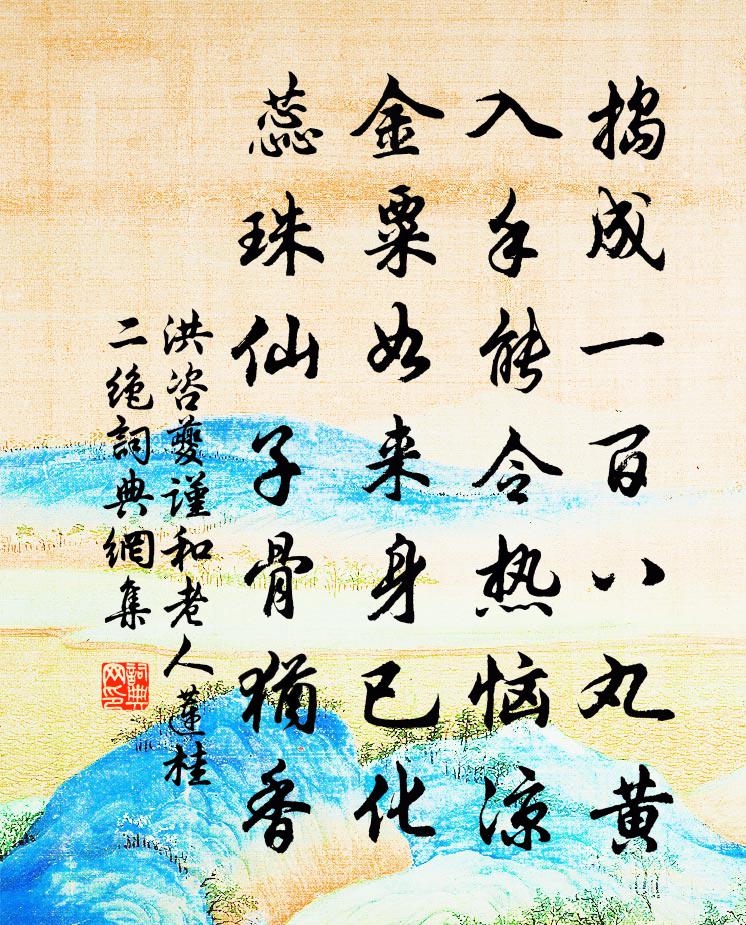 捣成一百八丸黄
入手能令热恼凉
金粟如来身已化
蕊珠仙子骨犹香
洪咨夔谨和老人莲桂
二绝词典網集
詞典
网印